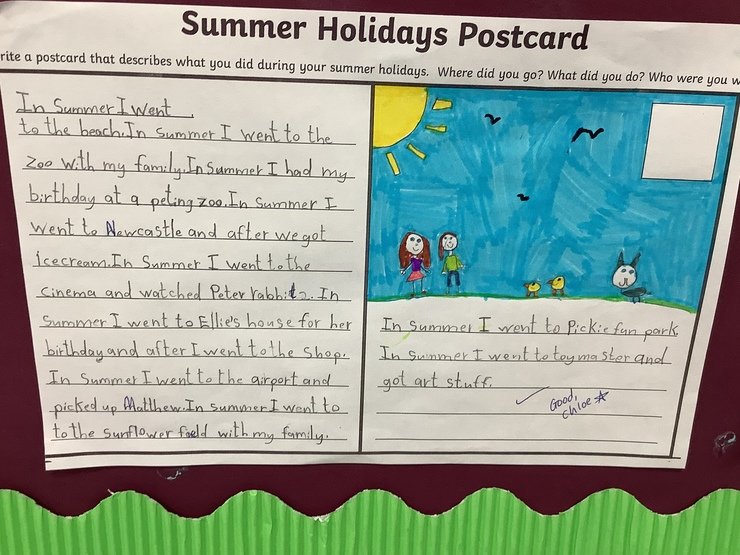 Summer Holidays Postcard
rite a postcard that describes what you did during your summer holidays. Where did you go? What did you do? Who were you w
In Summer I went
to the beach. In summer I went to the
zoo with my family. In summer I had my
birthday at a peting zoo. In Summer I
went to Newcastle and after we got
icecream. In Summer I went to the
cinema and watched Peter rabbit 2. In
summer I went to Ellie's house for her
birthday and after I went to the shop.
In Summer I went to the airport and
picked up Matthew. In summer I went to
to the sunflower field with my family.
In summer I went to Pickie fun park
In Summer I went to toymaster and
got art stuff.
Good,
Chloe